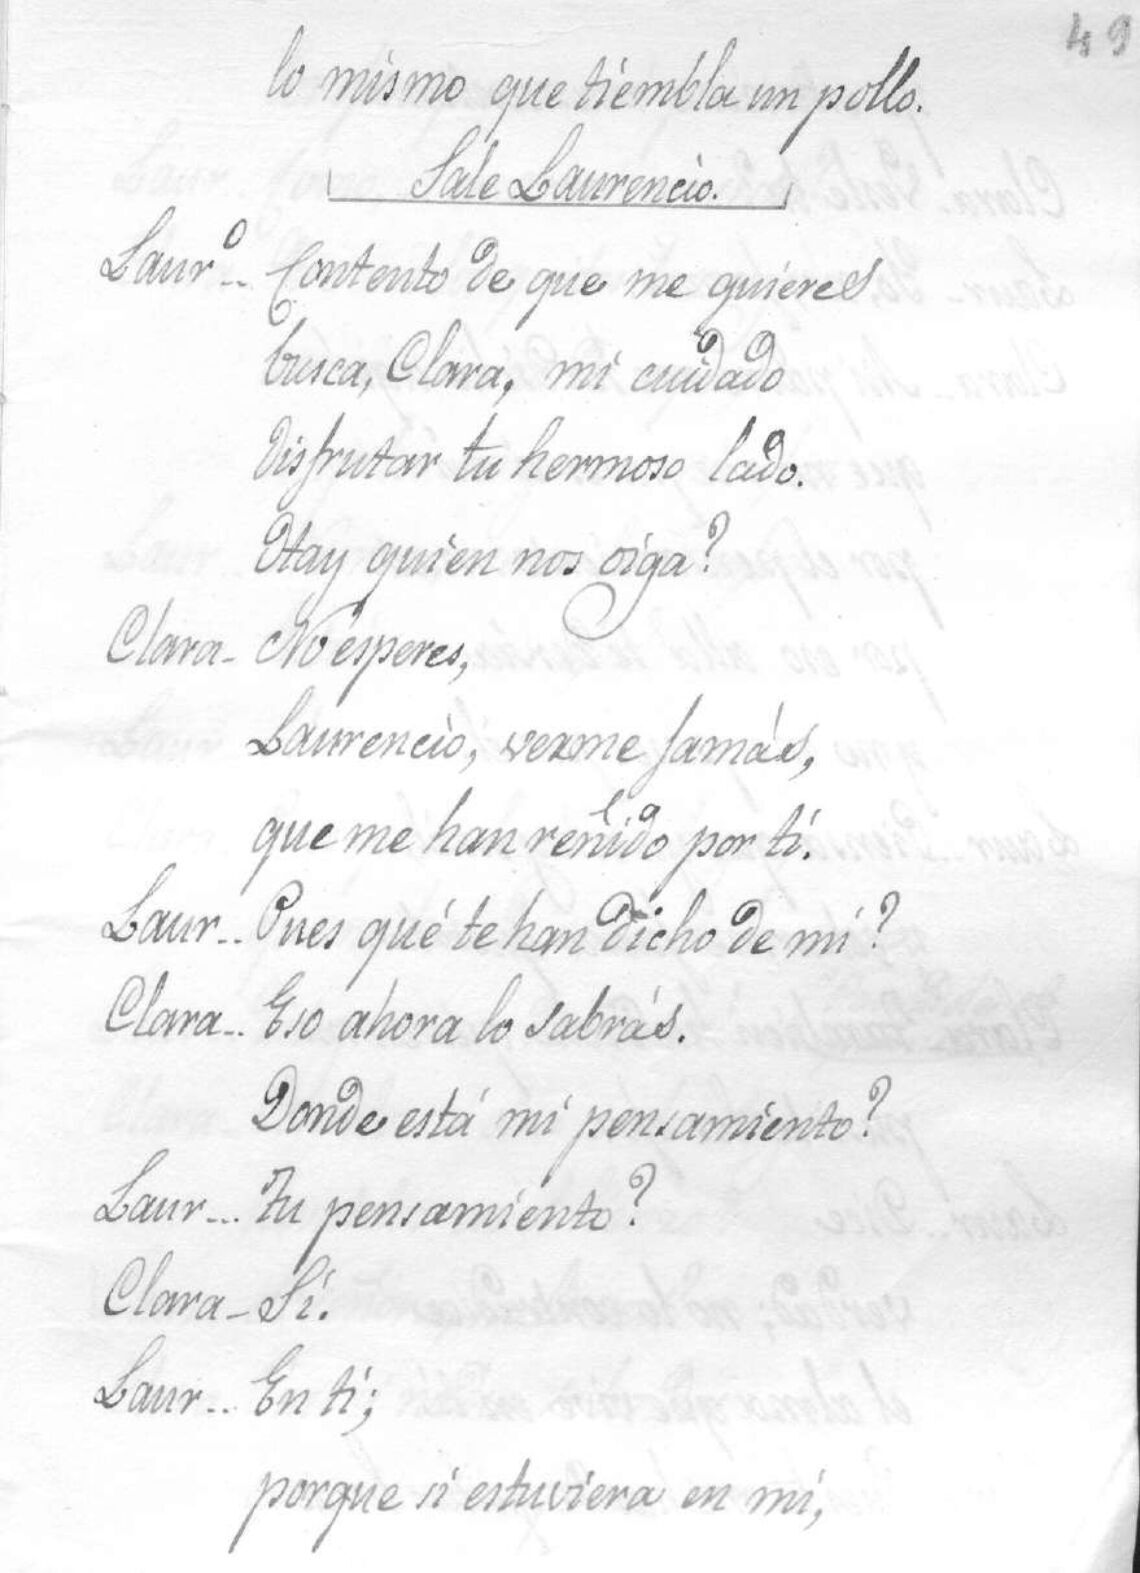 49
lo mismo que tiembla un pollo.
Sale Laurencio.
Laurº.. Contento de que me quieres
busca, Clara, mi cuidado
disfrutar tu hermoso lado.
Hay quien nos oiga?
Clara- No esperes,
Laurencio, verme jamás,
que me han reñido por tí.
Laur.. Pues qué te han dicho de mí?
Clara.. Eso ahora lo sabrás.
Donde está mi pensamiento?
Laur... Tu pensamiento?
Clara- Sí.
Laur.. En tí;
porque si estuviera en mí,